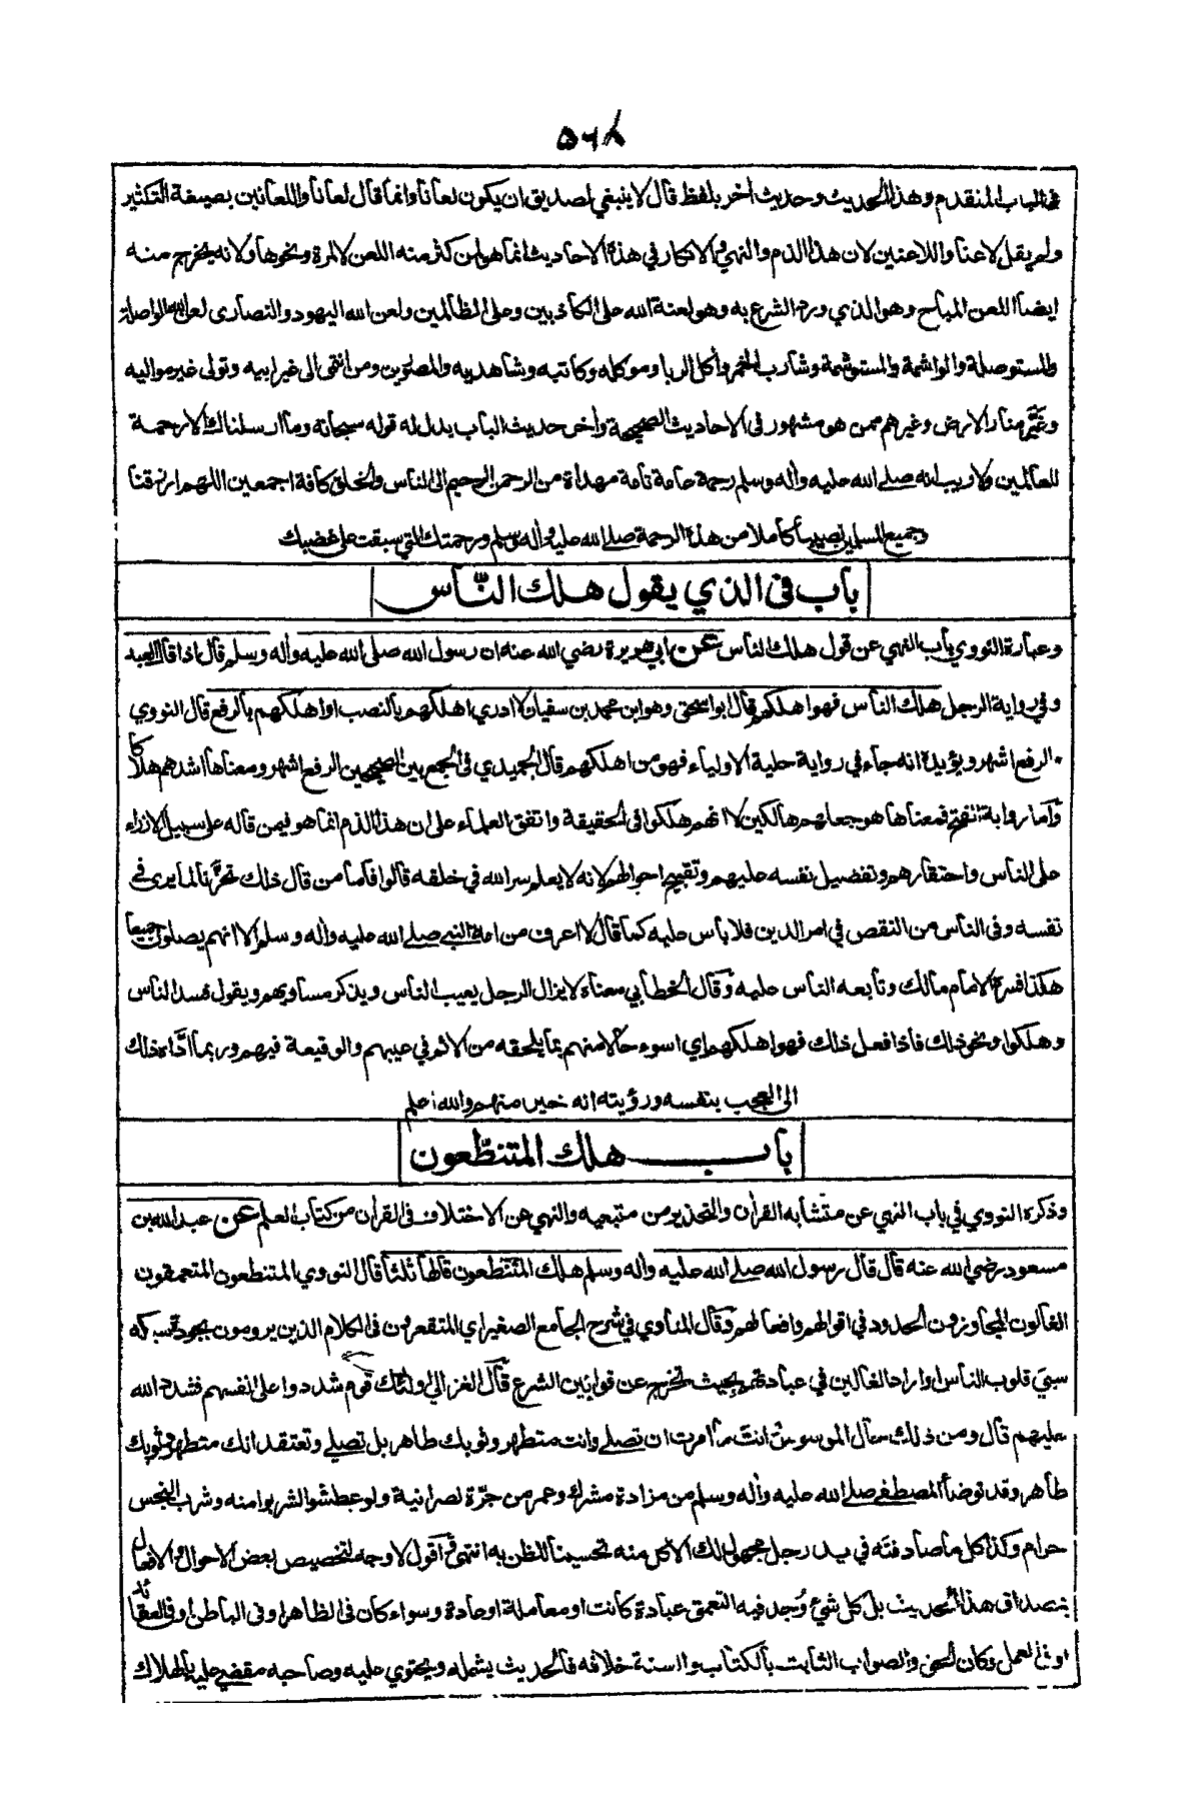 ٥٦٨
في الباب المتقدم وهذا الحديث وحديث اخر بلفظ قال لا ينبغي لصديق ان يكون لعانا وانما قال لعانا واللعانين بصيغة التكثير
ولم يقل لاعنا واللاعنين لان هذا الذم والنهي والانكار في هذه الاحاديث انما هو لمن كثر منه اللعن لا لمرة ونحوها ولانه يخرج منه
ايضا اللعن المباح وهو الذي ورد الشرع به وهو لعنة الله على الكاذبين وعلى الظالمين ولعن الله اليهود والنصارى لعن الله الواصلة
والمستوصلة والواشمة والمستوشمة وشارب الخمر وأكل الربا وموكله وكاتبه وشاهديه والمصورين ومن انتمى الى غير ابيه وتولى غير مواليه
وغيَّر منار الارض وغيرهم ممن هو مشهور في الاحاديث الصحيحة وأخر حديث الباب يدل له قوله سبحانه وما ارسلناك الا رحمة
للعالمين ولا ريب انه صلى الله عليه وأله وسلم رحمة عامة تامة مهداة من الرحمن الرحيم الى الناس والخلق كافة اجمعين اللهم ارزقنا
وجميع المسلمين نصيبا كاملا من هذه الرحمة صلى الله عليه وأله وسلم ورحمتك التي سبقت على غضبك
باب في الذي يقول هلك النّاس
وعبارة النووي باب النهي عن قول هلك الناس عن ابي هريرة رضي الله عنه ان رسول الله صلى الله عليه وأله وسلم قال اذا قال العبد
وفي رواية الرجل هلك الناس فهو اهلكهم قال ابو اسحق وهو ابن محمد بن سفيان لا ادري اهلكهم بالنصب او اهلكهم بالرفع قال النووي
الرفع اشهر ويؤيده انه جاء في رواية حلية الاولياء فهو من اهلكهم قال الحميدي في الجمع بين الصحيحين الرفع اشهر ومعناها اشدهم هلاكا
واما رواية الفتح فمعناها هو جعلهم هالكين لا انهم هلكوا في الحقيقة واتفق العلماء على ان هذا الذم انما هو فيمن قاله على سبيل الازراء
على الناس واحتقارهم وتفضيل نفسه عليهم وتقبيح احوالهم لانه لا يعلم سر الله في خلقه قالوا فاما من قال ذلك تحزنا لما يرى في
نفسه وفي الناس من النقص في امر الدين فلا بأس عليه كما قال لا اعرف من امة النبي صلى الله عليه وأله وسلم الا انهم يصلون جميعا
هكذا فسره الامام مالك وتابعه الناس عليه وقال الخطابي معناه لا يزال الرجل يعيب الناس ويذكر مساويهم ويقول فسد الناس
وهلكوا ونحو ذلك فاذا فعل ذلك فهو اهلكهم اي اسوء حالا منهم بما يلحقه من الاثم في عيبهم والوقيعة فيهم وربما ادَّاه ذلك
الى العجب بنفسه ورؤيته انه خير منهم والله اعلم
باب هلك المتنطّعون
وذكره النووي في باب النهي عن متشابه القرأن والتحذير من متبعيه والنهي عن الاختلاف في القرأن من كتاب العلم عن عبد الله بن
مسعود رضي الله عنه قال قال رسول الله صلى الله عليه وأله وسلم هلك المتنطعون قالها ثلثا قال النووي المتنطعون المتعمقون
الغالون المجاوزون الحدود في اقوالهم وافعالهم وقال المناوي في شرح الجامع الصغير اي المتقعرون في الكلام الذين يرومون بجودة سبكه
سبي قلوب الناس او اراد الغالين في عبادتهم بحيث تخرج عن قوانين الشرع قال الغزالي اولئك قوم شددوا على انفسهم فشدد الله
عليهم قال ومن ذلك حال الموسوس انت ما امرت ان تصلي وانت متطهر وثوبك طاهر بل تصلي وتعتقد انك متطهر وثوبك
طاهر وقد توضأ المصطفى صلى الله عليه وأله وسلم من مزادة مشرك وعمر من جرّة نصرانية ولو عطشوا لشربوا منه وشرب النجس
حرام وكذا كل ما صادفته في يد رجل مجهول لك الاكل منه تحسينا للظن به انتهى واقول لا وجه لتخصيص بعض الاحوال والافعال
بمصداق هذا الحديث بل كل شيء وُجد فيه التعمق عبادة كانت او معاملة او عادة وسواء كان في الظاهر او في الباطن او في العقائد
او في العمل وكان الحق والصواب الثابت بالكتاب والسنة خلافه فالحديث يشمله ويحتوي عليه وصاحبه مقضي عليه بالهلاك